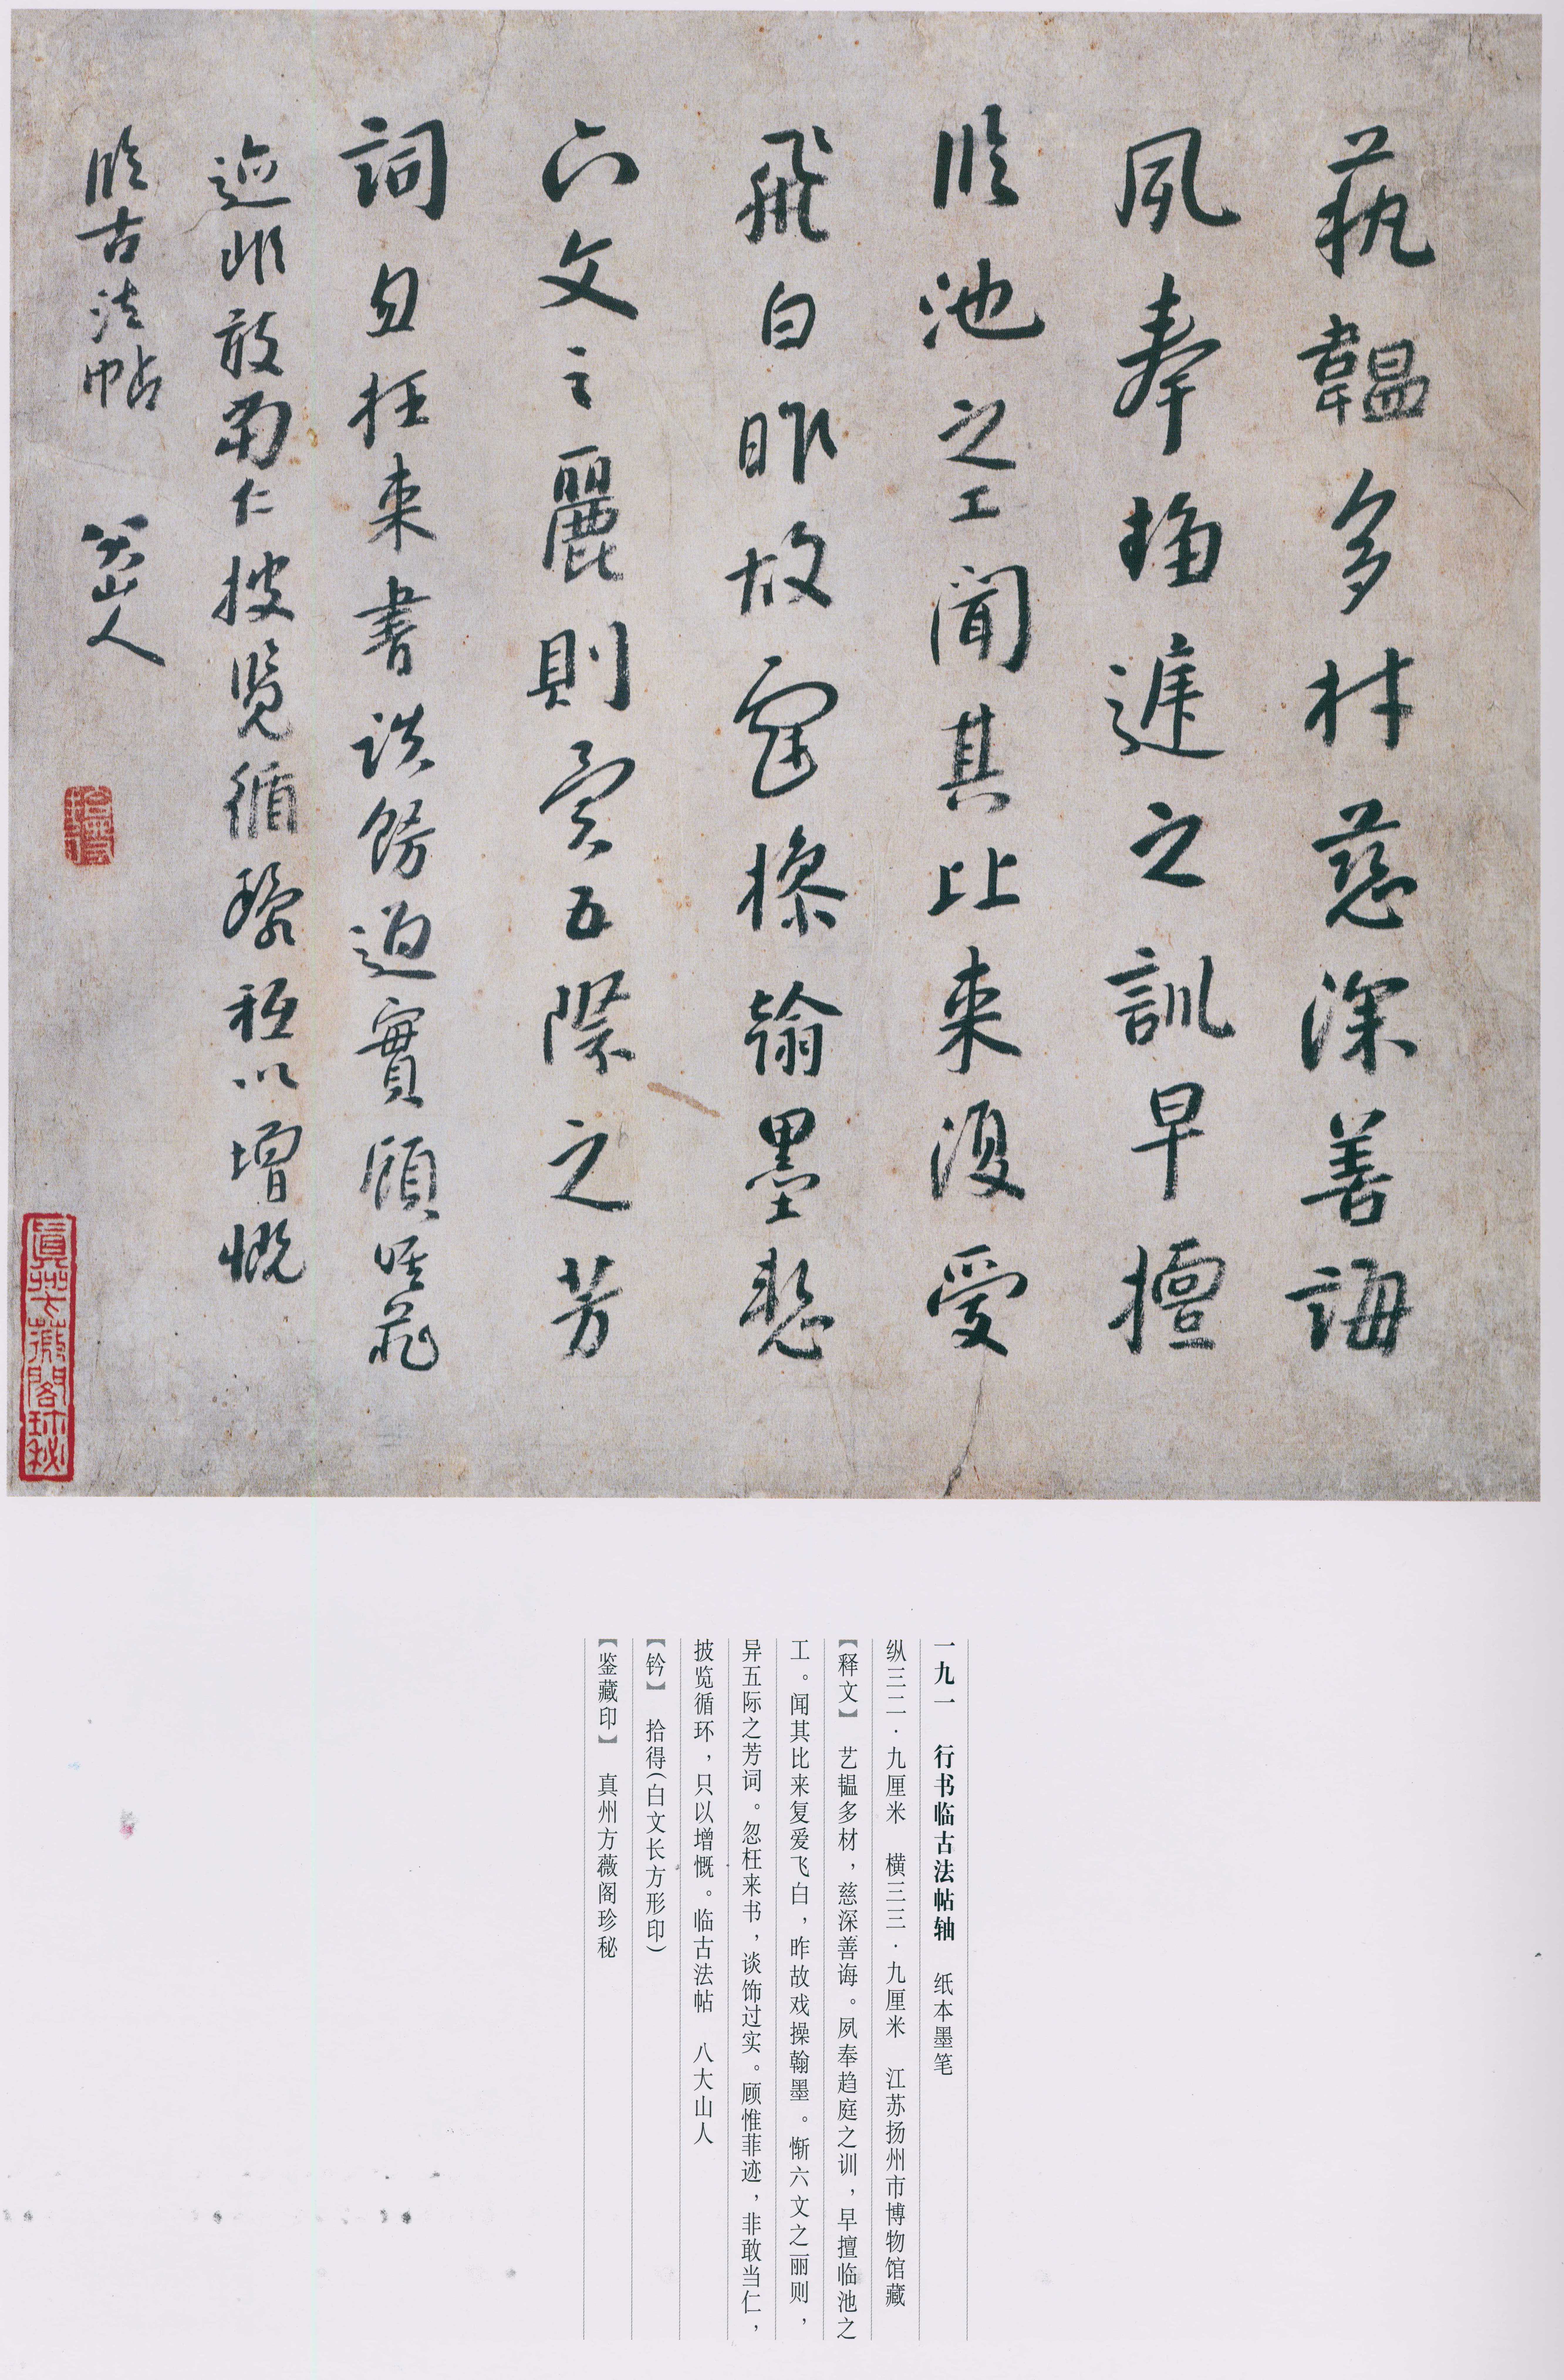 藝韞多材慈深善誨
夙奉趨庭之訓早擅
臨池之工聞其比來復愛
飛白昨故戲操翰墨慙
六文之麗則異五際之芳
詞忽枉來書談飾過實顧惟菲
迹非敢當仁披覽循環祗以增慨
臨古法帖 八大山人
真州方薇閣珍秘
一九一 行书临古法帖轴 纸本墨笔
纵三二·九厘米 横三三·九厘米 江苏扬州市博物馆藏
【释文】 艺韫多材，慈深善诲。夙奉趋庭之训，早擅临池之
工。闻其比来复爱飞白，昨故戏操翰墨。惭六文之丽则，
异五际之芳词。忽枉来书，谈饰过实。顾惟菲迹，非敢当仁，
披览循环，只以增慨。临古法帖 八大山人
【钤】 拾得(白文长方形印)
【鉴藏印】 真州方薇阁珍秘